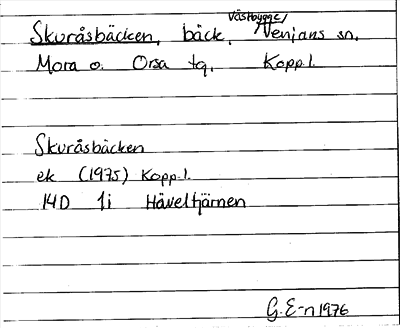 Västbygge/
Skuråsbäcken, bäck, Venjans sn,
Mora o. Orsa tg, Kopp.l.
Skuråsbäcken
ek (1975) Kopp.l.
14D 1i Häveltjärnen
G. E-n 1976